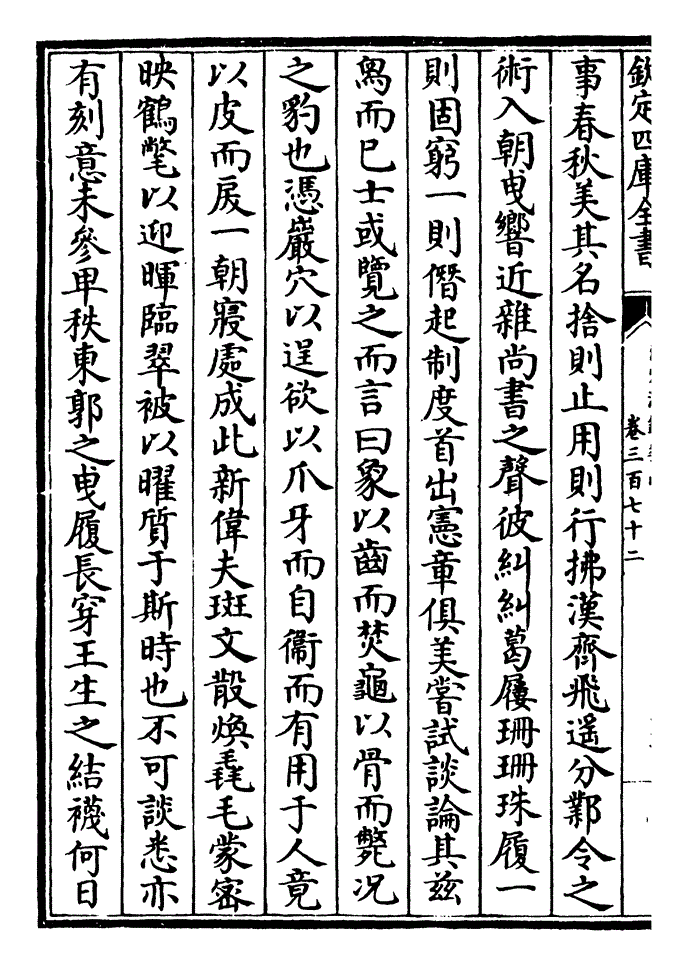 欽定四庫全書
卷三百七十二
事春秋美其名捨則止用則行拂漢齊飛遥分鄴令之
術入朝曵響近雜尚書之聲彼糾糾葛屨珊珊珠履一
則固窮一則僭起制度首出憲章俱美嘗試談論其兹
舄而已士或覽之而言曰象以齒而焚龜以骨而斃况
之豹也憑巖穴以逞欲以爪牙而自衞而有用于人竟
以皮而戻一朝寢處成此新偉夫斑文散煥毳毛蒙宻
映鶴氅以迎暉臨翠被以曜質于斯時也不可談悉亦
有刻意未參甲秩東郭之曵履長穿王生之結襪何日